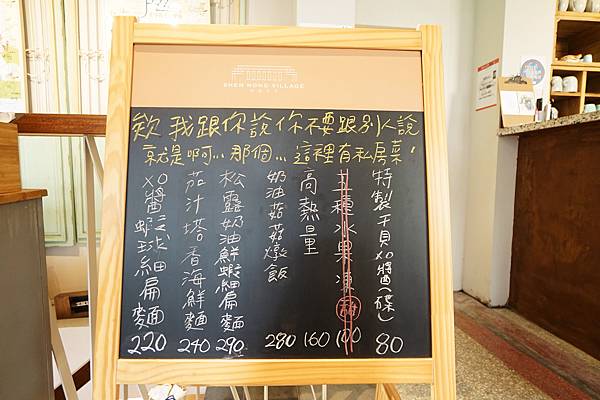 SHEN NONG VILLAGE
欸 我跟你說你不要跟別人說
就是啊... 那個... 這裡有私房菜!
特製干貝XO醬(碟) 80
五種水果凍 100
高熱量 160
奶油菇菇燉飯 280
松露奶油鮮蝦細扁麵 290
茄汁塔香海鮮麵 240
XO醬蝦斑細扁麵 220